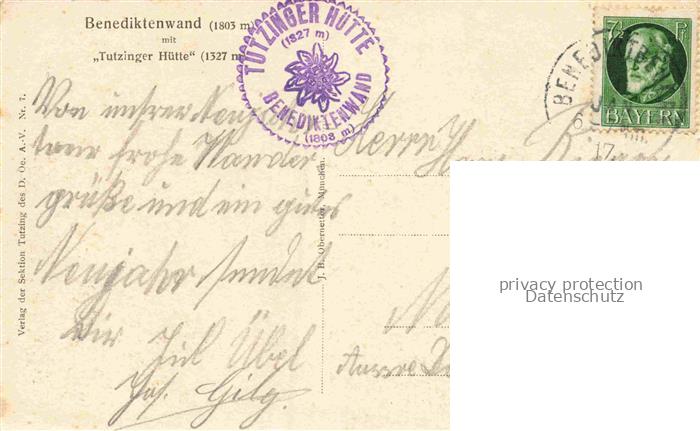 Benediktenwand (1803 m)
mit
„Tutzinger Hütte" (1327 m)
TUTZINGER HÜTTE
(1327 m)
BENEDIKTENWAND
(1803 m)
7½ Pf
BAYERN
BENEDIKTB
17
Von unsrer Neujahrs
tour frohe Wander
grüße und ein gutes
Neujahr sendet
Dir
Jos. Gilg.
Herrn
Verlag der Sektion Tutzing des D. Oe. A.-V. Nr. 7.
J. B. Obernetter, München.
privacy protection
Datenschutz